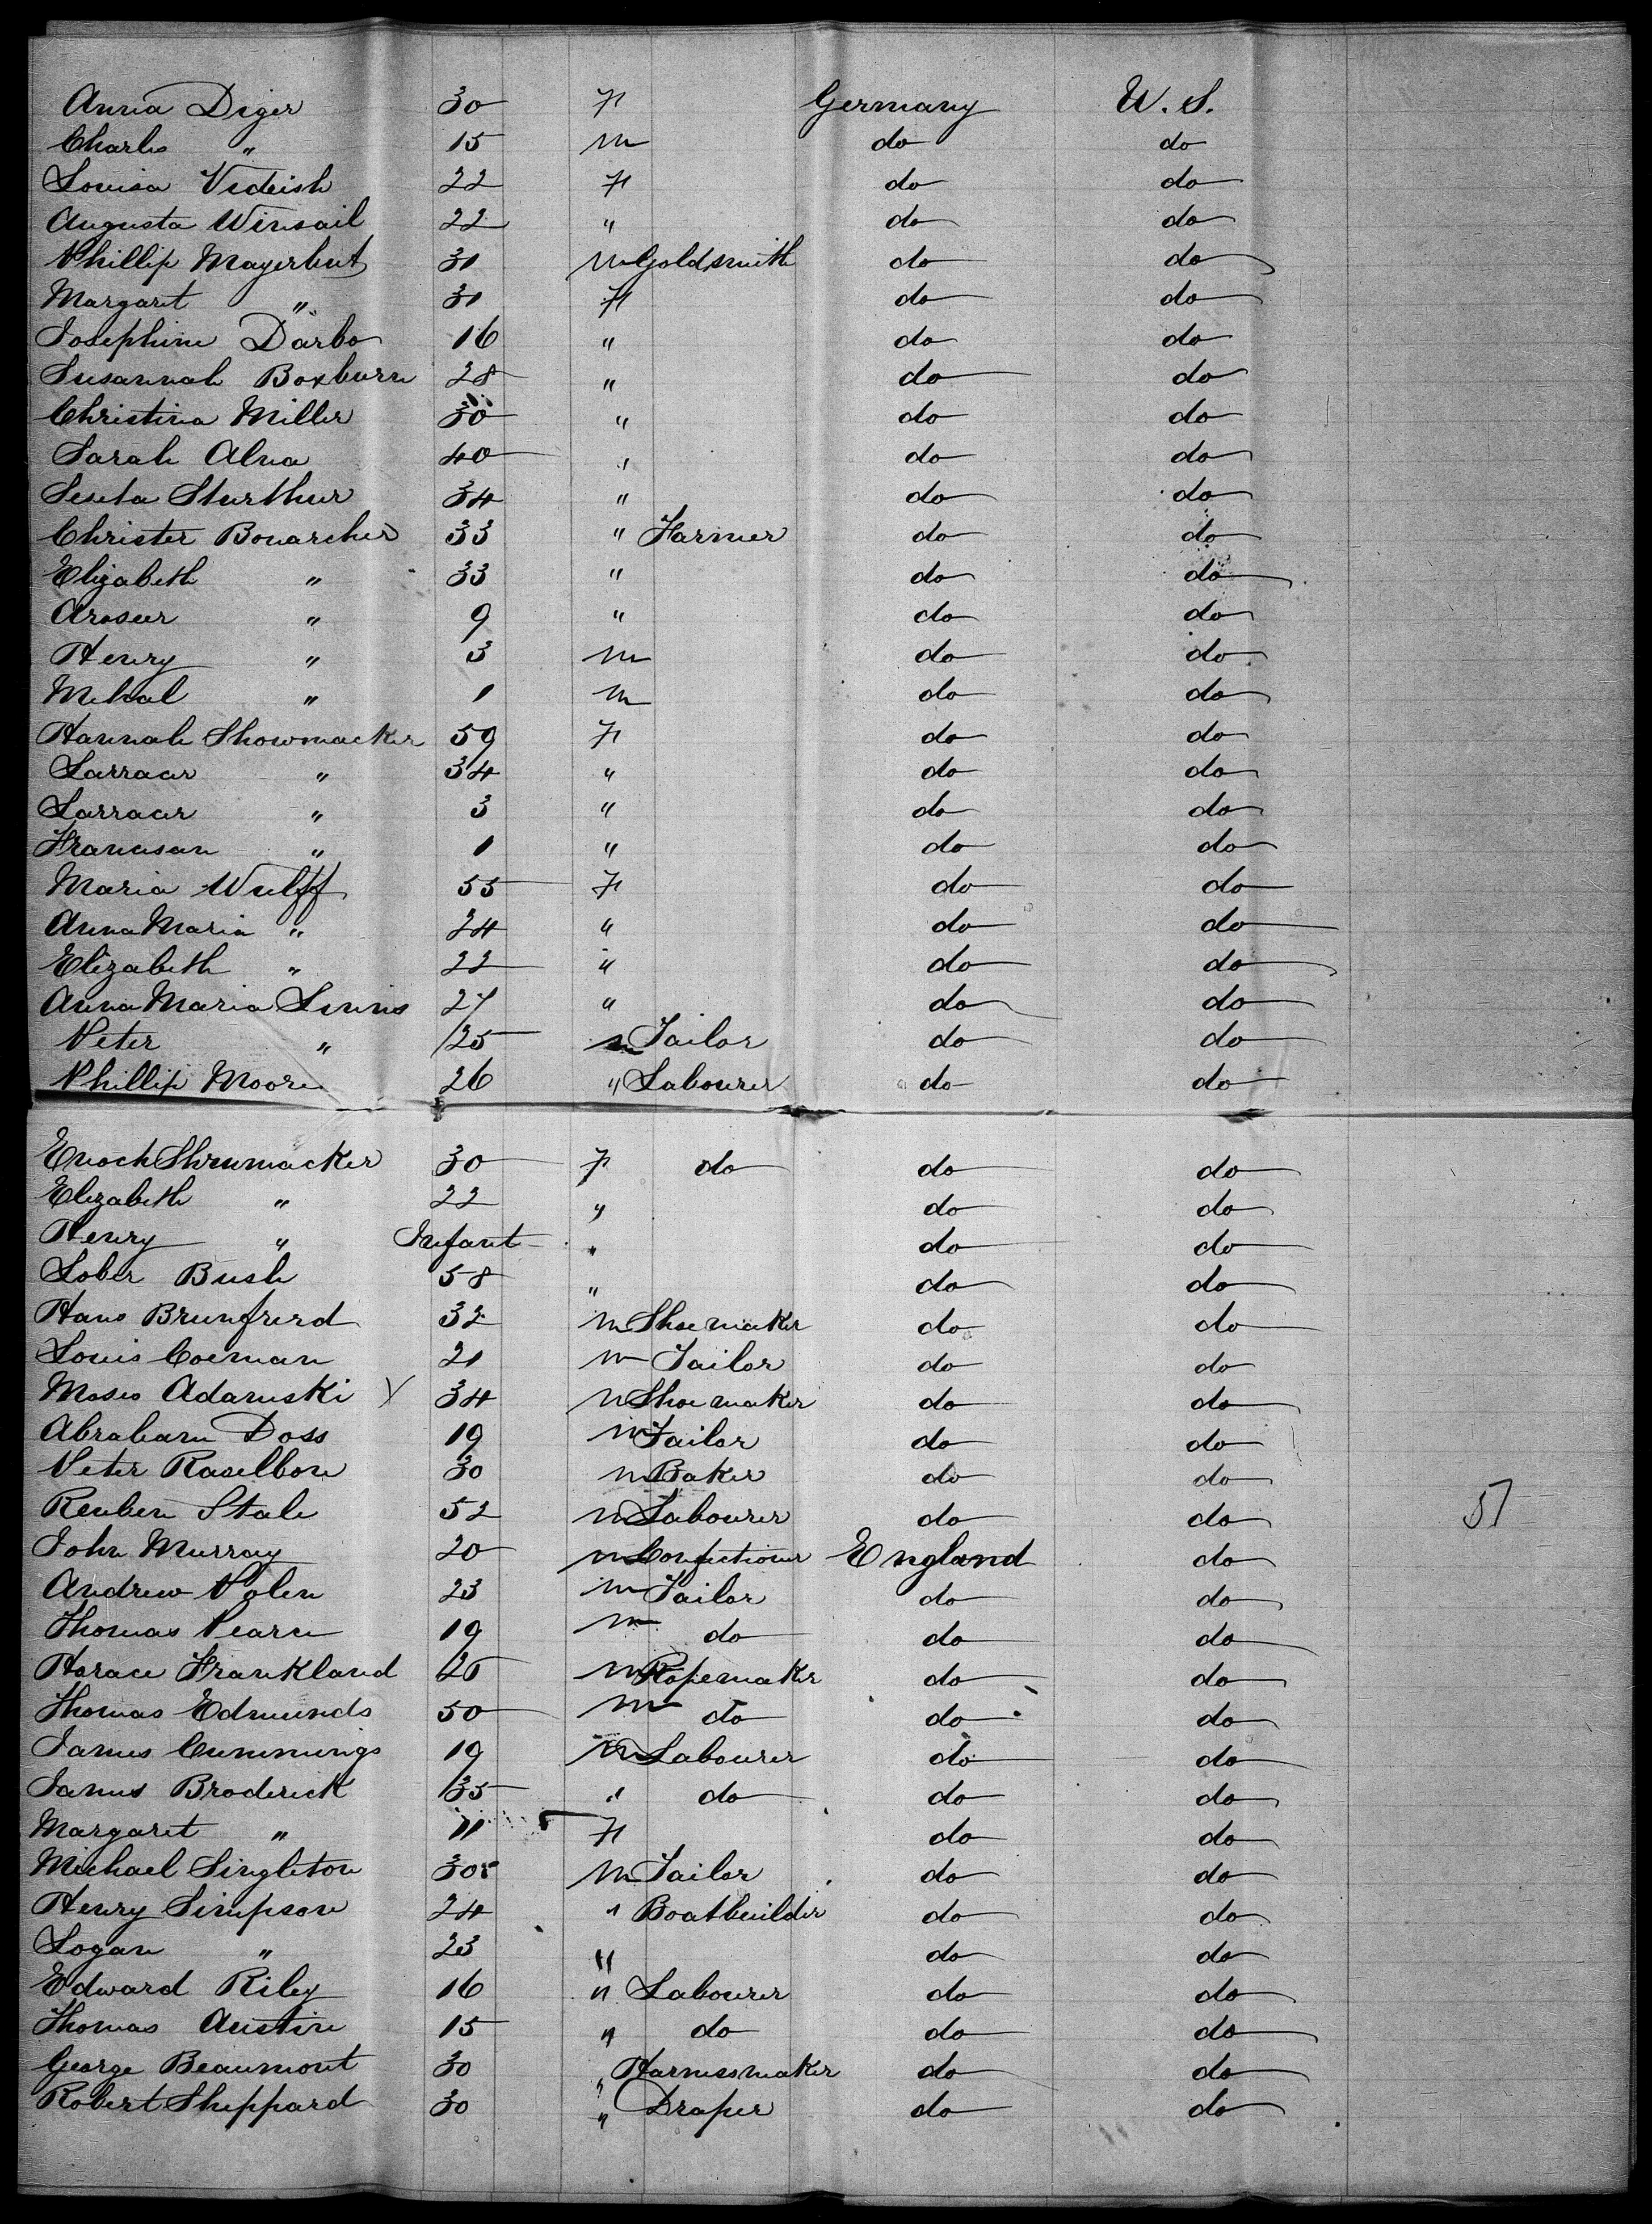 Anna Diger 30 F Germany U. S.
Charles " 15 m do do
Louisa Videish 22 F do do
Augusta Winsail 22 " do do
Phillip Mayerbut 31 m Goldsmith do do
Margaret " 31 F do do
Josephine Darbo 16 " do do
Susannah Boxburn 28 " do do
Christina Miller 30 " do do
Sarah Alna 40 " do do
Seseta Sturthur 34 " do do
Christer Bouarcher 33 " Farmer do do
Elizabeth " 33 " do do
Araseer " 9 " do do
Henry " 3 m do do
Mehal " 1 m do do
Hannah Showmacker 59 F do do
Sarraar " 34 " do do
Sarraar " 3 " do do
Francisan " 1 " do do
Maria Wulff 55 F do do
Anna Maria " 24 " do do
Elizabeth " 22 " do do
Anna Maria Sinnis 27 " do do
Peter " 25 m Tailor do do
Phillip Moore 26 " Labourer do do
Enoch Shrumacker 30 F do do do
Elizabeth " 22 " do do
Henry " Infant " do do
Lober Bush 58 " do do
Hans Brunfrerd 32 m Shoemaker do do
Louis Coeman 21 m Tailor do do
Moses Adamski X 34 m Shoemaker do do
Abraham Doss 19 m Tailor do do
Peter Raselbon 30 m Baker do do
Reuben Stale 52 m Labourer do do 57
John Murray 20 m Confectioner England do
Andrew Polen 23 m Tailor do do
Thomas Pearce 19 m do do do
Horace Frankland 25 m Ropemaker do do
Thomas Edmunds 50 m do do do
James Cummings 19 m Labourer do do
James Broderick 35 " do do do
Margaret " 11 F do do
Michael Singleton 30 m Tailor do do
Henry Simpson 24 " Boatbuilder do do
Logan " 23 " do do
Edward Riley 16 " Labourer do do
Thomas Austin 15 " do do do
George Beaumont 30 " Harnessmaker do do
Robert Sheppard 30 " Draper do do